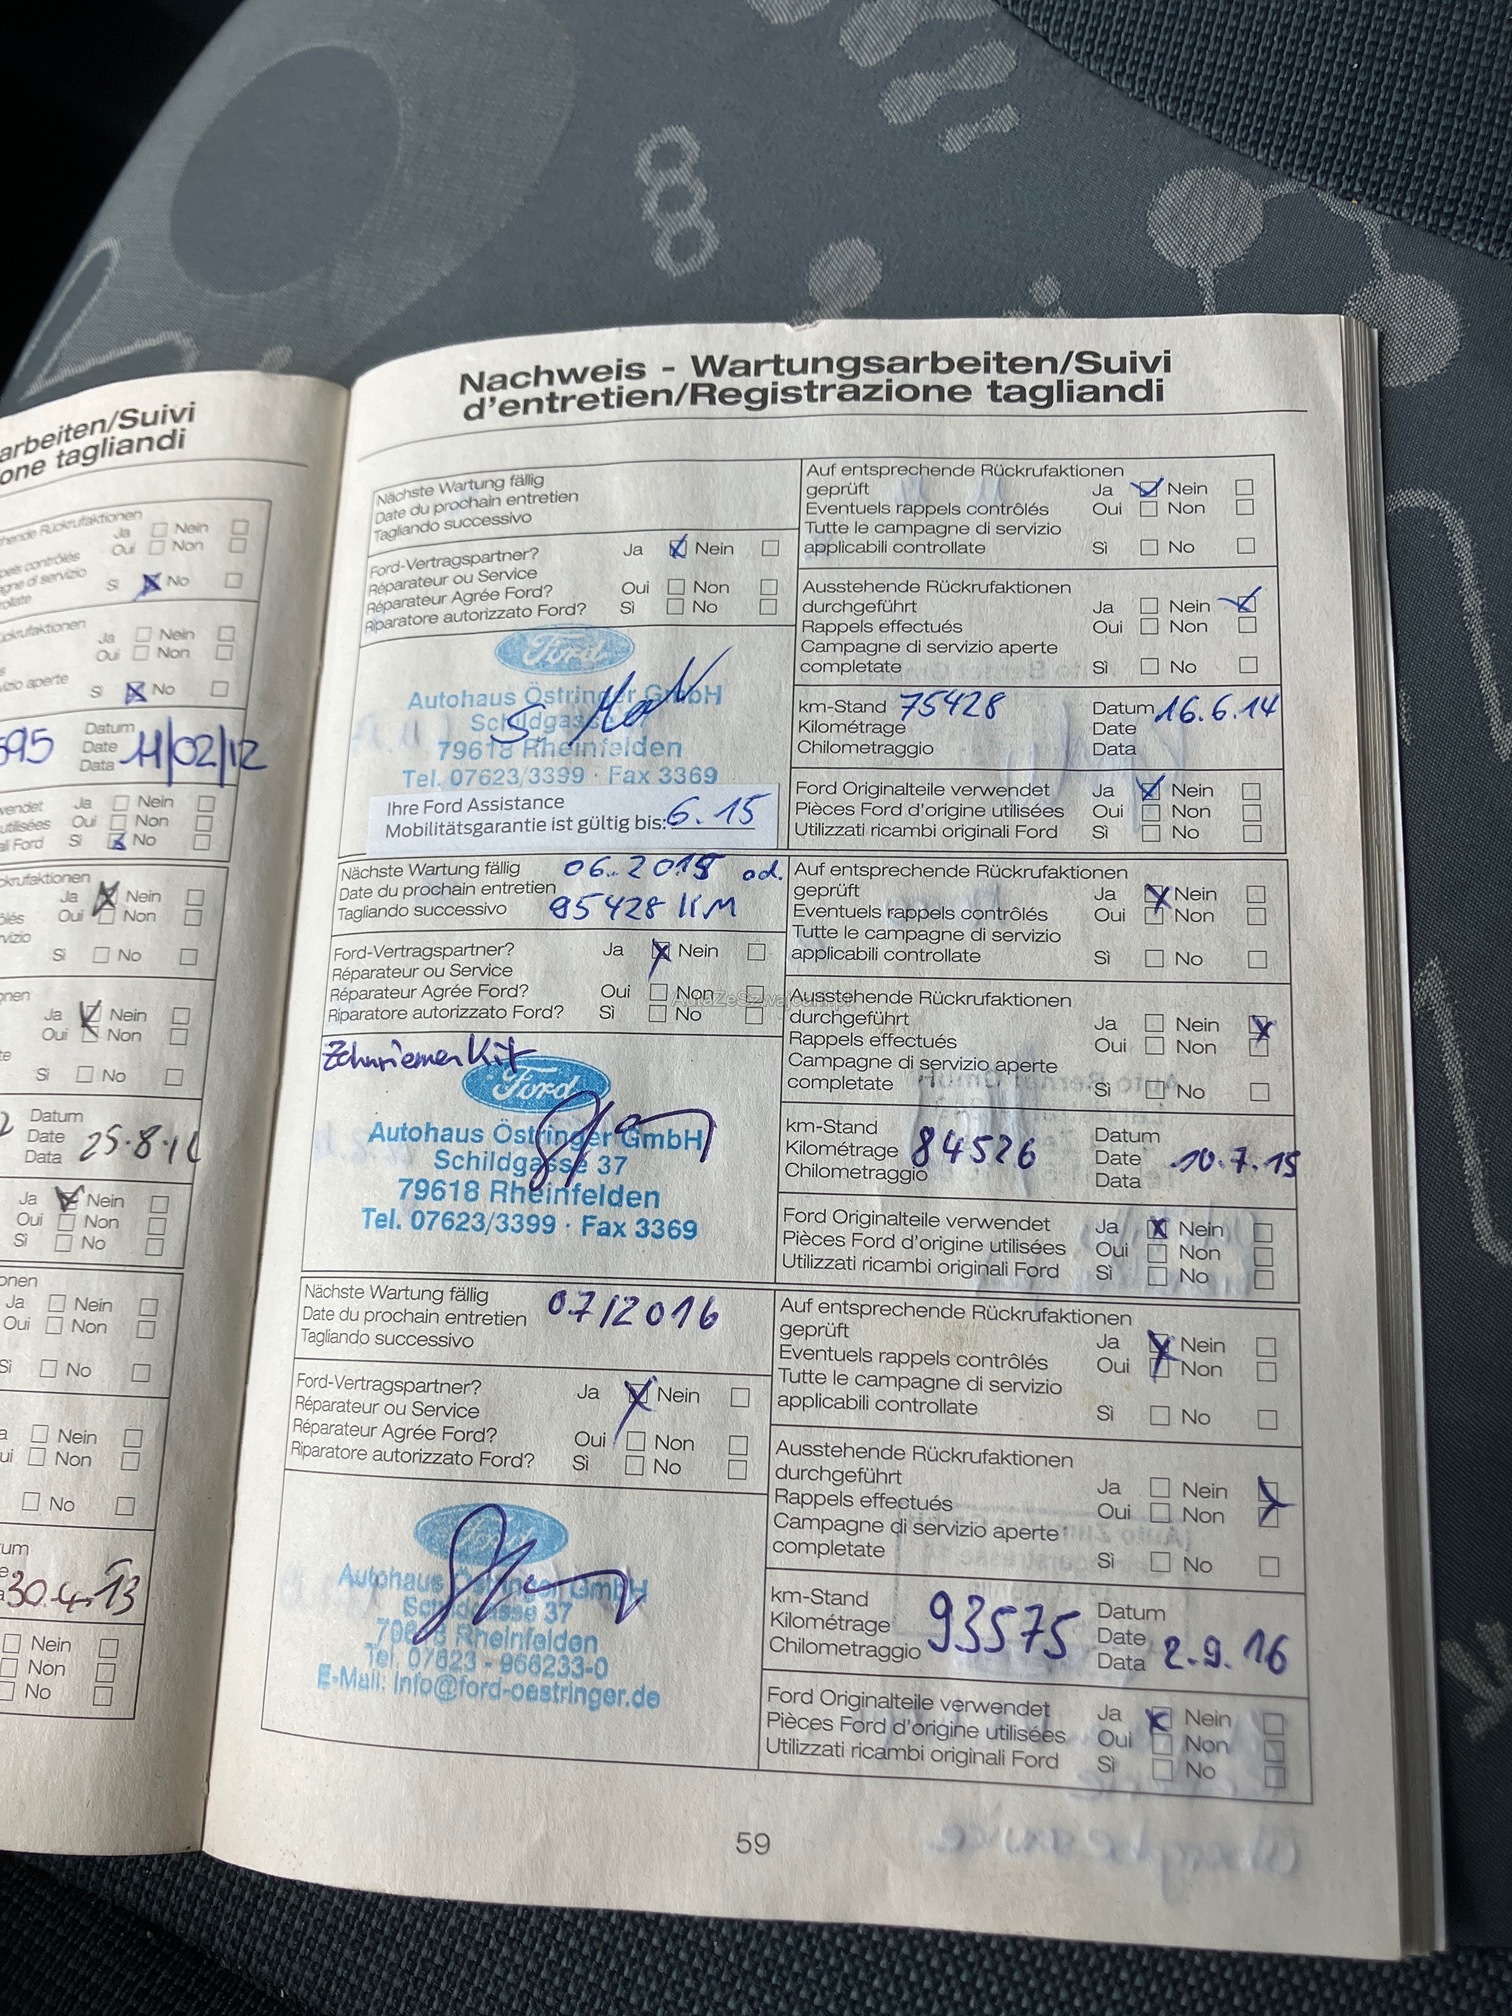 arbeiten/Suivi
one tagliandi
hende Rückrufaktionen
Ja Nein
Oui Non
Sì No
Ja Nein
Oui Non
izio aperte
Sì No
595
Datum
Date
Data
11/02/12
Ja Nein
Oui Non
Sì No
Ja Nein
Oui Non
Sì No
Ja Nein
Oui Non
Sì No
Datum
Date
Data
Ja Nein
Oui Non
Sì No
Ja Nein
Oui Non
Sì No
Nein
Non
No
30.4.13
Nein
Non
No
Nachweis - Wartungsarbeiten/Suivi
d'entretien/Registrazione tagliandi
Nächste Wartung fällig
Date du prochain entretien
Tagliando successivo
Ford-Vertragspartner? Ja Nein
Réparateur ou Service
Réparateur Agrée Ford? Oui Non
Riparatore autorizzato Ford? Sì No
Ford
Autohaus Östringer GmbH
Schildgasse
79618 Rheinfelden
Tel. 07623/3399 · Fax 3369
Ihre Ford Assistance
Mobilitätsgarantie ist gültig bis: 6.15
Auf entsprechende Rückrufaktionen
geprüft Ja Nein
Eventuels rappels contrôlés Oui Non
Tutte le campagne di servizio
applicabili controllate Sì No
Ausstehende Rückrufaktionen
durchgeführt Ja Nein
Rappels effectués Oui Non
Campagne di servizio aperte
completate Sì No
km-Stand 75428 Datum 16.6.14
Kilométrage Date
Chilometraggio Data
Ford Originalteile verwendet Ja Nein
Pièces Ford d'origine utilisées Oui Non
Utilizzati ricambi originali Ford Sì No
Nächste Wartung fällig 06.2015 od.
Date du prochain entretien
Tagliando successivo 95428 KM
Ford-Vertragspartner? Ja Nein
Réparateur ou Service
Réparateur Agrée Ford? Oui Non
Riparatore autorizzato Ford? Sì No
Zahnriemen Kit
Ford
Autohaus Östringer GmbH
Schildgasse 37
79618 Rheinfelden
Tel. 07623/3399 · Fax 3369
Auf entsprechende Rückrufaktionen
geprüft Ja Nein
Eventuels rappels contrôlés Oui Non
Tutte le campagne di servizio
applicabili controllate Sì No
Ausstehende Rückrufaktionen
durchgeführt Ja Nein
Rappels effectués Oui Non
Campagne di servizio aperte
completate Sì No
km-Stand Datum
Kilométrage 84526 Date 10.7.15
Chilometraggio Data
Ford Originalteile verwendet Ja Nein
Pièces Ford d'origine utilisées Oui Non
Utilizzati ricambi originali Ford Sì No
Nächste Wartung fällig 07/2016
Date du prochain entretien
Tagliando successivo
Ford-Vertragspartner? Ja Nein
Réparateur ou Service
Réparateur Agrée Ford? Oui Non
Riparatore autorizzato Ford? Sì No
Ford
Autohaus Östringer GmbH
Schildgasse 37
79618 Rheinfelden
Tel. 07623 - 966233-0
E-Mail: info@ford-oestringer.de
Auf entsprechende Rückrufaktionen
geprüft Ja Nein
Eventuels rappels contrôlés Oui Non
Tutte le campagne di servizio
applicabili controllate Sì No
Ausstehende Rückrufaktionen
durchgeführt Ja Nein
Rappels effectués Oui Non
Campagne di servizio aperte
completate Sì No
km-Stand Datum
Kilométrage 93575 Date 2.9.16
Chilometraggio Data
Ford Originalteile verwendet Ja Nein
Pièces Ford d'origine utilisées Oui Non
Utilizzati ricambi originali Ford Sì No
59